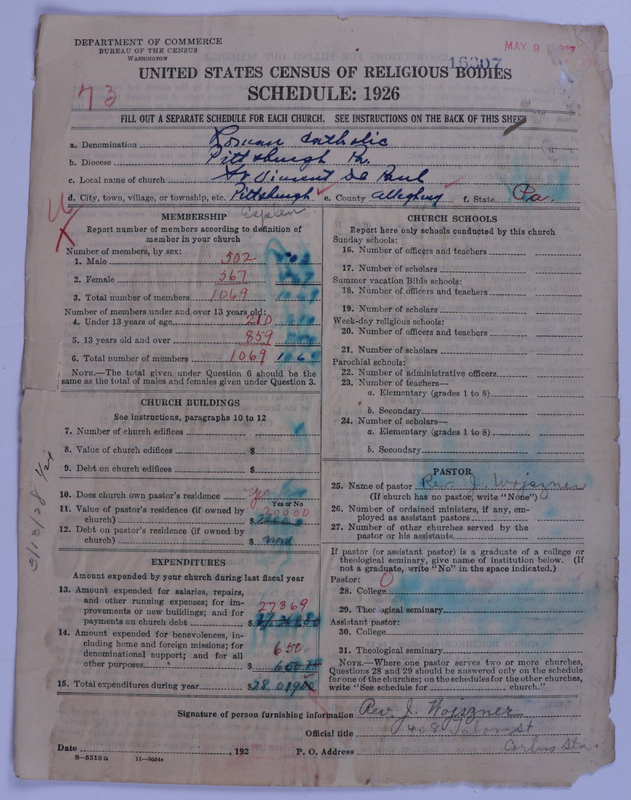 DEPARTMENT OF COMMERCE
BUREAU OF THE CENSUS
WASHINGTON
MAY 9
16207
UNITED STATES CENSUS OF RELIGIOUS BODIES
73
SCHEDULE: 1926
FILL OUT A SEPARATE SCHEDULE FOR EACH CHURCH. SEE INSTRUCTIONS ON THE BACK OF THIS SHEET
a. Denomination Roman Catholic
b. Diocese Pittsburgh Pa.
c. Local name of church St Vincent De Paul
d. City, town, village, or township, etc. Pittsburgh e. County Allegheny f. State Pa.
Esplen
MEMBERSHIP
Report number of members according to definition of
member in your church
Number of members, by sex:
1. Male 502
2. Female 567
3. Total number of members 1069 1069
Number of members under and over 13 years old:
4. Under 13 years of age 210
5. 13 years old and over 859
6. Total number of members 1069 1069
NOTE.—The total given under Question 6 should be the
same as the total of males and females given under Question 3.
CHURCH BUILDINGS
See instructions, paragraphs 10 to 12
7. Number of church edifices
8. Value of church edifices $
9. Debt on church edifices $
10. Does church own pastor's residence Yes
Yes or No
11. Value of pastor's residence (if owned by
church) $ 20000
12. Debt on pastor's residence (if owned by
church) $ none
EXPENDITURES
Amount expended by your church during last fiscal year
13. Amount expended for salaries, repairs,
and other running expenses; for im-
provements or new buildings; and for
payments on church debt $ 27369
14. Amount expended for benevolences, in-
cluding home and foreign missions; for
denominational support; and for all
other purposes $ 650
15. Total expenditures during year $ 28.019
CHURCH SCHOOLS
Report here only schools conducted by this church
Sunday schools:
16. Number of officers and teachers
17. Number of scholars
Summer vacation Bible schools:
18. Number of officers and teachers
19. Number of scholars
Week-day religious schools:
20. Number of officers and teachers
21. Number of scholars
Parochial schools:
22. Number of administrative officers
23. Number of teachers—
a. Elementary (grades 1 to 8)
b. Secondary
24. Number of scholars—
a. Elementary (grades 1 to 8)
b. Secondary
PASTOR
25. Name of pastor Rev. J. Wojszner
(If church has no pastor, write "None")
26. Number of ordained ministers, if any, em-
ployed as assistant pastors
27. Number of other churches served by the
pastor or his assistants
If pastor (or assistant pastor) is a graduate of a college or
theological seminary, give name of institution below. (If
not a graduate, write "No" in the space indicated.)
Pastor: 0
28. College
29. Theological seminary
Assistant pastor:
30. College
31. Theological seminary
NOTE.—Where one pastor serves two or more churches,
Questions 28 and 29 should be answered only on the schedule
for one of the churches; on the schedules for the other churches,
write "See schedule for church."
Signature of person furnishing information Rev. J. Wojszner
Official title
408 St
Date , 192 P. O. Address Corliss Sta.
8—5518a 11—9034a
3/13/28